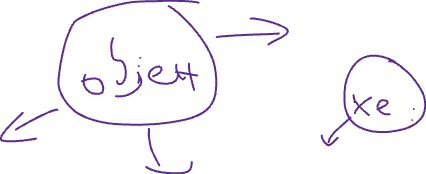 objett
xe